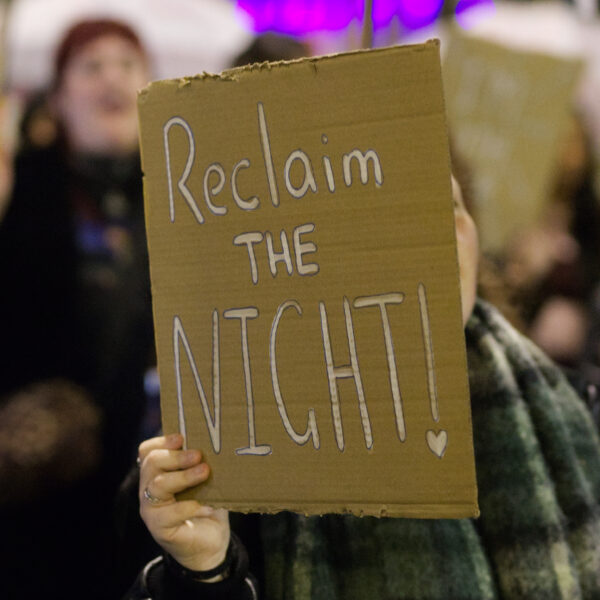 Reclaim
THE
NIGHT!
I'M